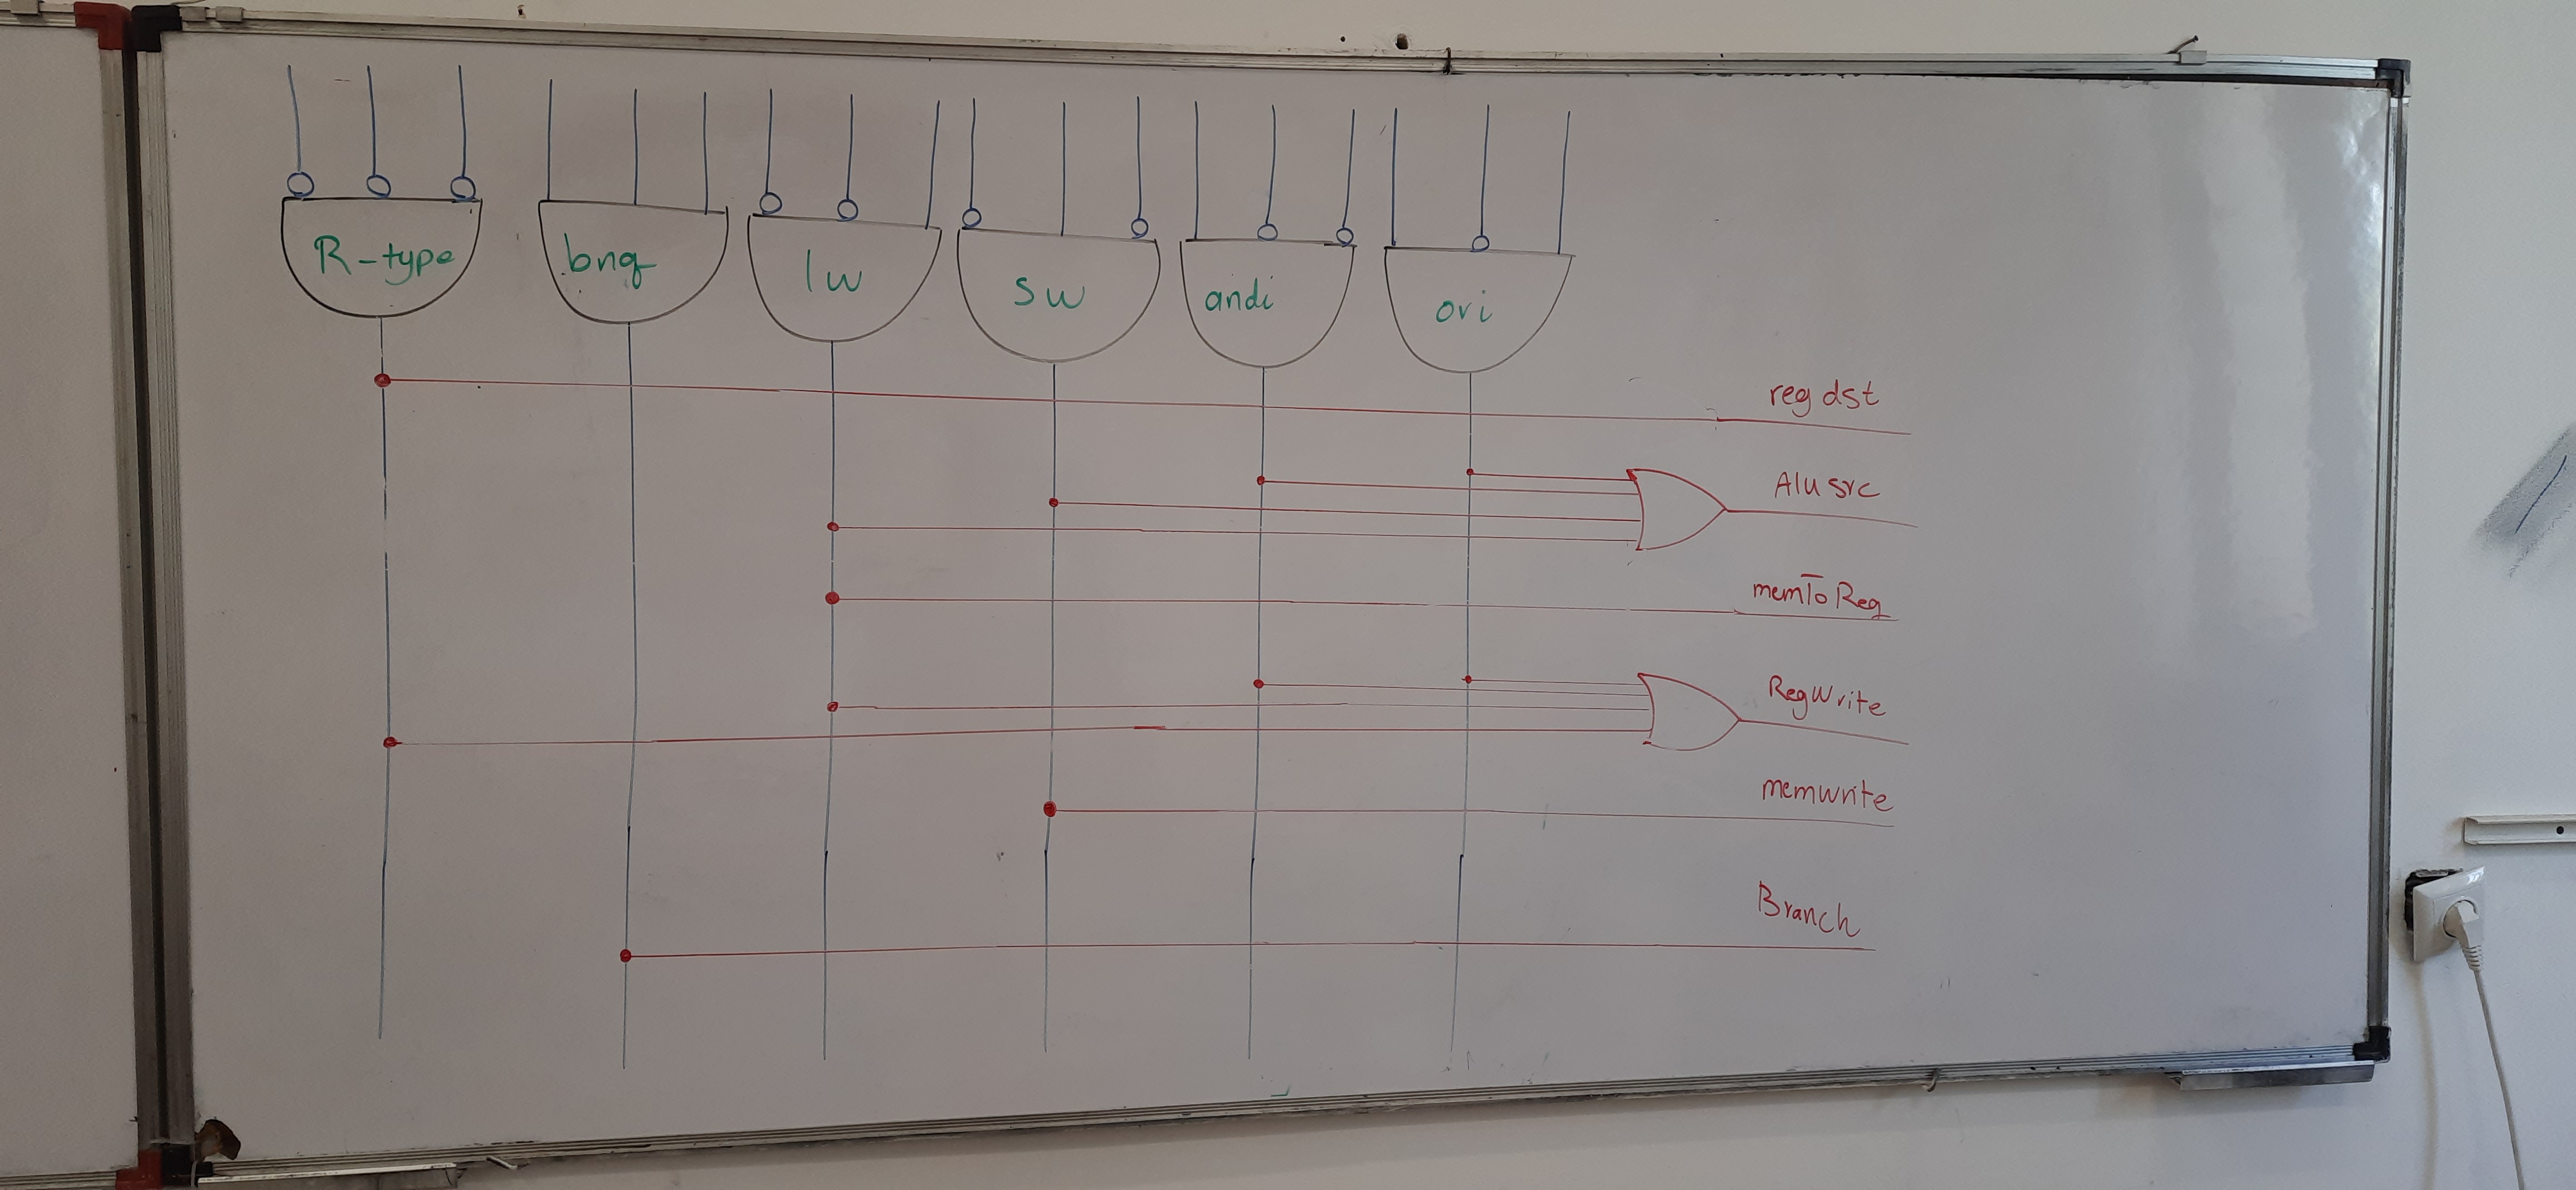 R-type bnq lw sw andi ori
reg dst
Alu src
memToReg
RegWrite
memwrite
Branch